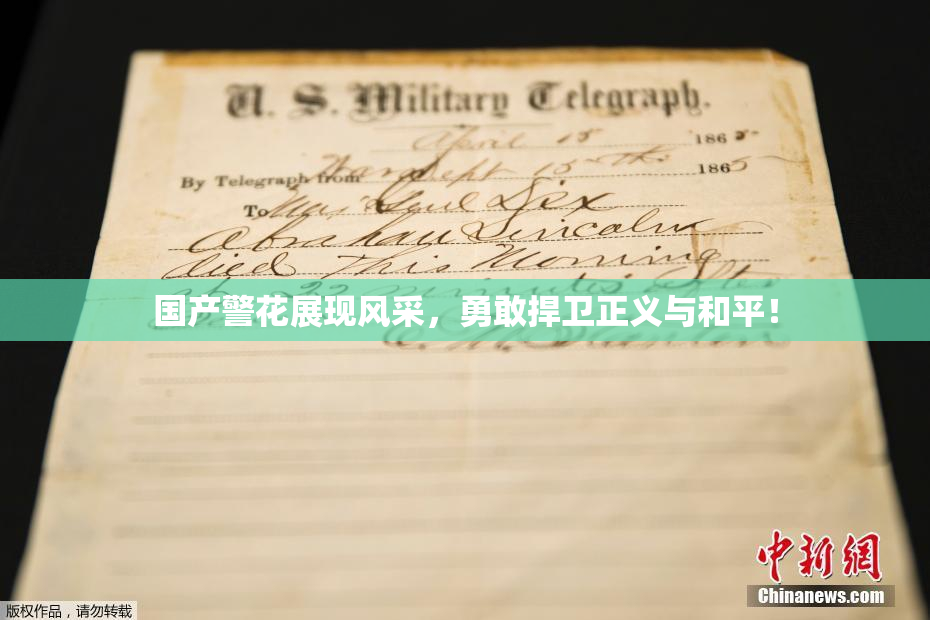 U. S. Military Telegraph.
April 15 1865
By Telegraph from War Dept 15th 1865
To Maj Genl Dix
Abraham Lincoln
died This Morning
at 22 minutes after
国产警花展现风采，勇敢捍卫正义与和平！
E. M. Stanton
中新网
Chinanews.com
版权作品，请勿转载